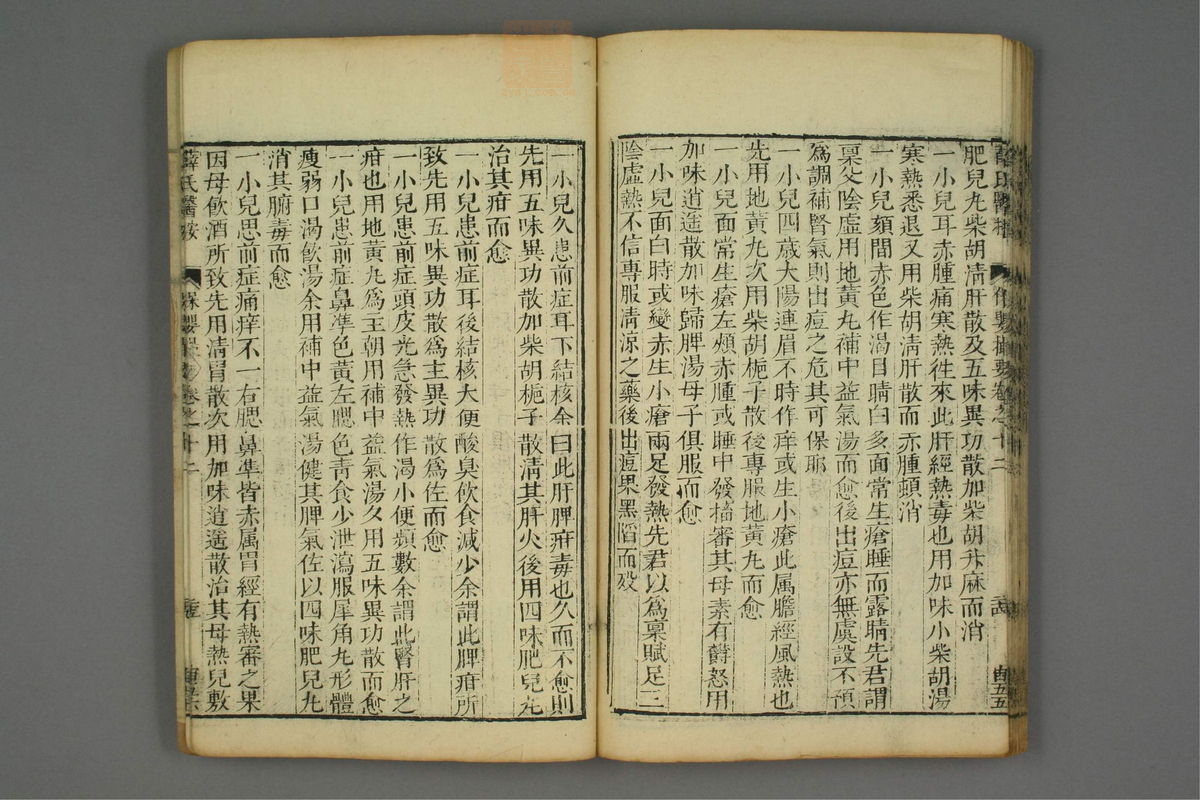 薛氏醫按 保嬰撮要卷之十二
肥兒丸柴胡清肝散及五味異功散加柴胡升麻而消
一小兒耳赤腫痛寒熱徃來此肝經熱毒也用加味小柴胡湯
寒熱悉退又用柴胡清肝散而赤腫頓消
一小兒頦間赤色作渴目睛白多面常生瘡睡而露睛先君謂
稟父陰虛用地黃丸補中益氣湯而愈後出痘亦無虞設不預
爲調補腎氣則出痘之危其可保耶
一小兒四歲大陽連眉不時作痒或生小瘡此属膽經風熱也
先用地黃丸次用柴胡梔子散後專服地黃丸而愈
一小兒面常生瘡左頰赤腫或睡中發搐審其母素有欝怒用
加味逍遙散加味歸脾湯母子俱服而愈
一小兒面白時或變赤生小瘡兩足發熱先君以爲稟賦足三
陰虛熱不信專服清涼之藥後出痘果黑陷而殁
一小兒久患前症耳下結核余曰此肝脾疳毒也久而不愈則
先用五味異功散加柴胡梔子散清其肝火後用四味肥兒丸
治其疳而愈
一小兒患前症耳後結核大便酸臭飲食減少余謂此脾疳所
致先用五味異功散爲主異功散爲佐而愈
一小兒患前症頭皮光急發熱作渴小便頻數余謂此腎肝之
疳也用地黃丸爲主朝用補中益氣湯久用五味異功散而愈
一小兒患前症鼻準色黃左腮色青食少泄瀉服犀角丸形體
瘦弱口渴飲湯余用補中益氣湯健其脾氣佐以四味肥兒丸
消其腑毒而愈
一小兒思前症痛痒不一右腮鼻準皆赤属胃經有熱審之果
因母飲酒所致先用清胃散次用加味逍遙散治其母熱兒敷
薛氏醫按 保嬰撮要卷之十二